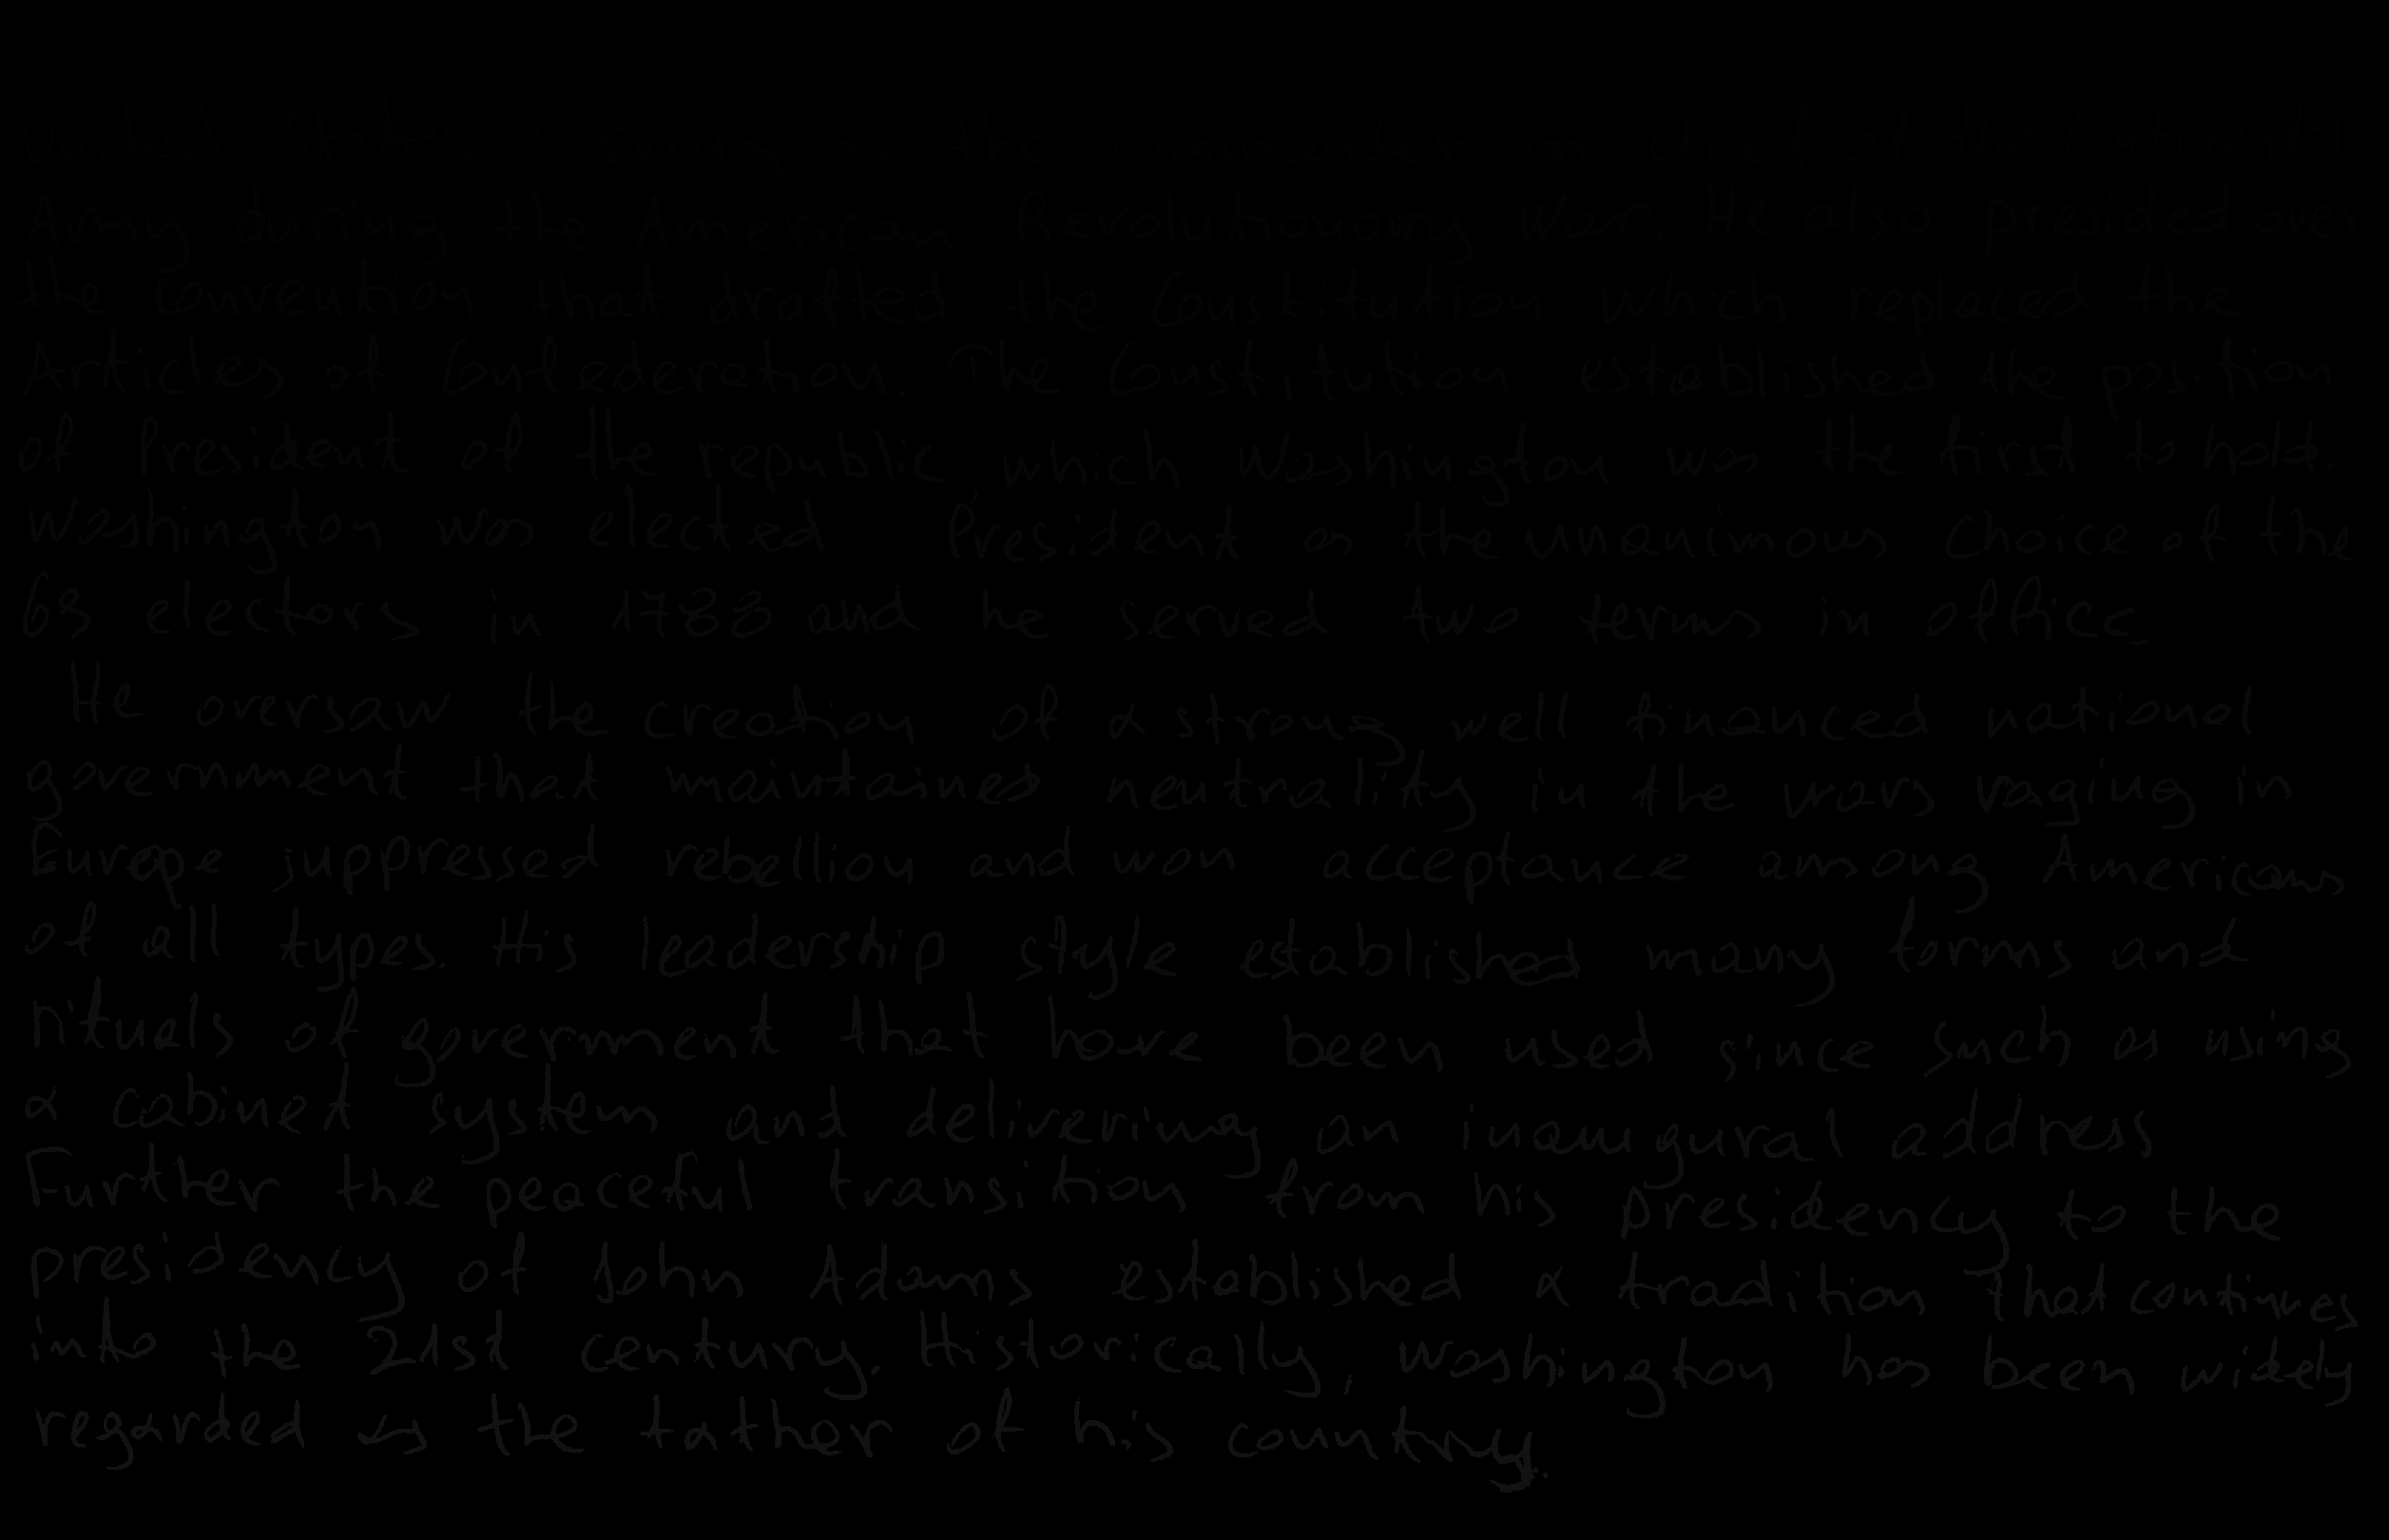 George Washington was one of the Founding Fathers of the
United States serving as the commander in chief of the Continental
Army during the American Revolutionary War. He also presided over
the convention that drafted the Constitution which replaced the
Articles of Confederation. The Constitution established the position
of President of the republic, which Washington was the first to hold.
Washington was elected President as the unanimous choice of the
69 electors in 1788 and he served two terms in office.
He oversaw the creation of a strong well financed national
government that maintained neutrality in the wars raging in
Europe suppressed rebellion and won acceptance among Americans
of all types. His leadership style established many forms and
rituals of government that have been used since such as using
a cabinet system and delivering an inaugural address
Further the peaceful transition from his presidency to the
presidency of John Adams established a tradition that continues
into the 21st century. Historically, Washington has been widely
regarded as the father of his country.